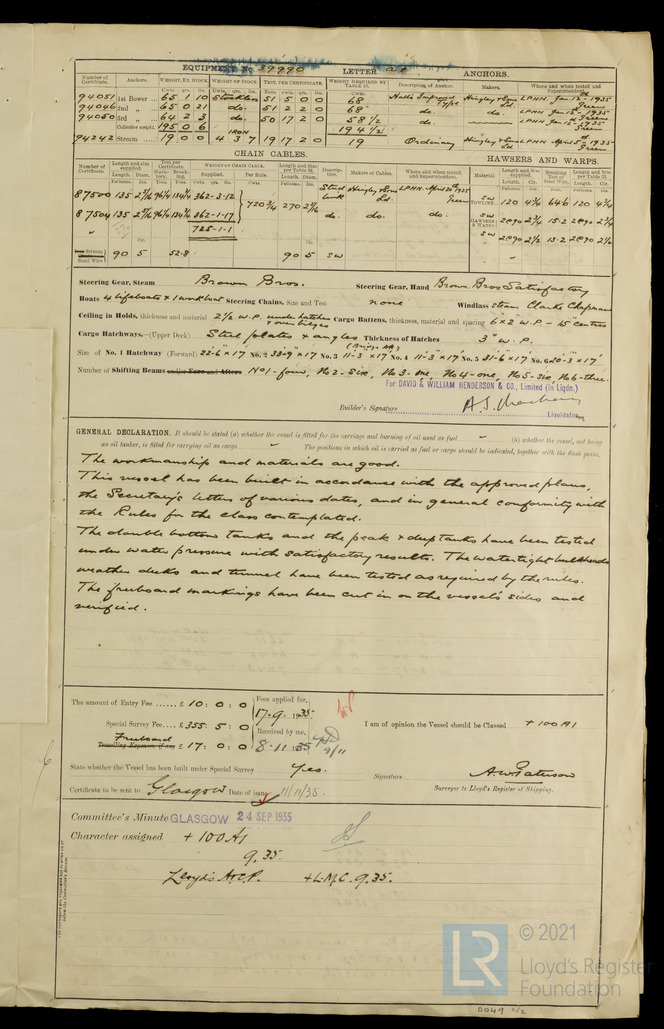 EQUIPMENT No. 39990 LETTER at ANCHORS.
Number of Certificate. Anchors. WEIGHT, EX. STOCK. WEIGHT OF STOCK. TEST, PER CERTIFICATE. WEIGHT REQUIRED BY TABLE 53. Description of Anchor. Makers. Where and when tested and Superintendent.
94051 1st Bower 65 1 10 Stockless 51 5 0 0 68 Halls Improved Type Hingley & Sons Ld. LPHH. Jan. 12-1935 Green
94046 2nd „ 65 0 21 do. 51 2 2 0 68 do. do. LPHH Jan 15-1935 Green
94050 3rd „ 64 2 3 do. 50 17 2 0 58½ do. LPHH Jan 15-1935 Green
Collective weight. 195 0 6 194½
94242 Stream 19 0 0 IRON 4 3 7 19 17 2 0 19 Ordinary Hingley & Sons Ld LPHH April 5th 1935 Green
CHAIN CABLES. HAWSERS AND WARPS.
87500 135 2 9/16 362-3-12 720¾ 270 2 9/16 Stud Link Hingley & Sons Ld. LPHH. April 1935 Green SW TOWLINE 120 4¾ 64.6 120 4¾
87504 135 2 9/16 362-1-17 do. do. do. SW HAWSERS & WARPS 2@90 2¾ 15.2 2@90 2¾
725-1-1 SW 2@90 2½ 13.2 2@90 2½
Steel Wire 90 5 52.8 90 5 SW
Steering Gear, Steam Brown Bros. Steering Gear, Hand Brown Bros Satisfactory
Boats 4 lifeboats & 1 workboat Steering Chains, Size and Test none Windlass Steam Clarke Chapman
Ceiling in Holds, thickness and material 2½ W.P. under hatches & over bilges Cargo Battens, thickness, material and spacing 6×2 W.P. – 15" centres
Cargo Hatchways.—(Upper Deck) Steel plates & angles Thickness of Hatches 3" W.P.
Size of No. 1 Hatchway (Forward) 22-6 × 17 No. 2 33-9 × 17 No. 3 11-3 × 17 No. 4 11-3 × 17 No. 5 31-6 × 17 No. 6 20-3 × 17
Number of Shifting Beams No 1-four, No 2-six, No 3-one, No 4-one, No 5-six, No 6-three.
For DAVID & WILLIAM HENDERSON & CO., Limited (in Liqdn.)
Builder's Signature
Liquidator
GENERAL DECLARATION. It should be stated (a) whether the vessel is fitted for the carriage and burning of oil used as fuel (b) whether the vessel, not being
an oil tanker, is fitted for carrying oil as cargo The positions in which oil is carried as fuel or cargo should be indicated, together with the flash point.
The workmanship and materials are good.
This vessel has been built in accordance with the approved plans,
the Secretary's letters of various dates, and in general conformity with
the Rules for the class contemplated.
The double bottom tanks and the peak & deep tanks have been tested
under water pressure with satisfactory results. The watertight bulkheads
weather decks and tunnel have been tested as required by the rules.
The freeboard markings have been cut in on the vessel's sides and
verified.
The amount of Entry Fee ...... £ 10 : 0 : 0 Fees applied for, 17.9.1935
Special Survey Fee .... £ 355 : 5 : 0 I am of opinion the Vessel should be Classed +100A1
Freeboard £ 17 : 0 : 0 Received by me, 8.11.35 9/11
State whether the Vessel has been built under Special Survey Yes. Signature A. W. Paterson
Certificate to be sent to Glasgow Date of issue 11/11/35. Surveyor to Lloyd's Register of Shipping.
Committee's Minute GLASGOW 24 SEP 1935
Character assigned +100A1
9.35.
Lloyd's A.&C.P. +L.M.C. 9.35.
LR
© 2021
Lloyd's Register
Foundation
0049 2/2